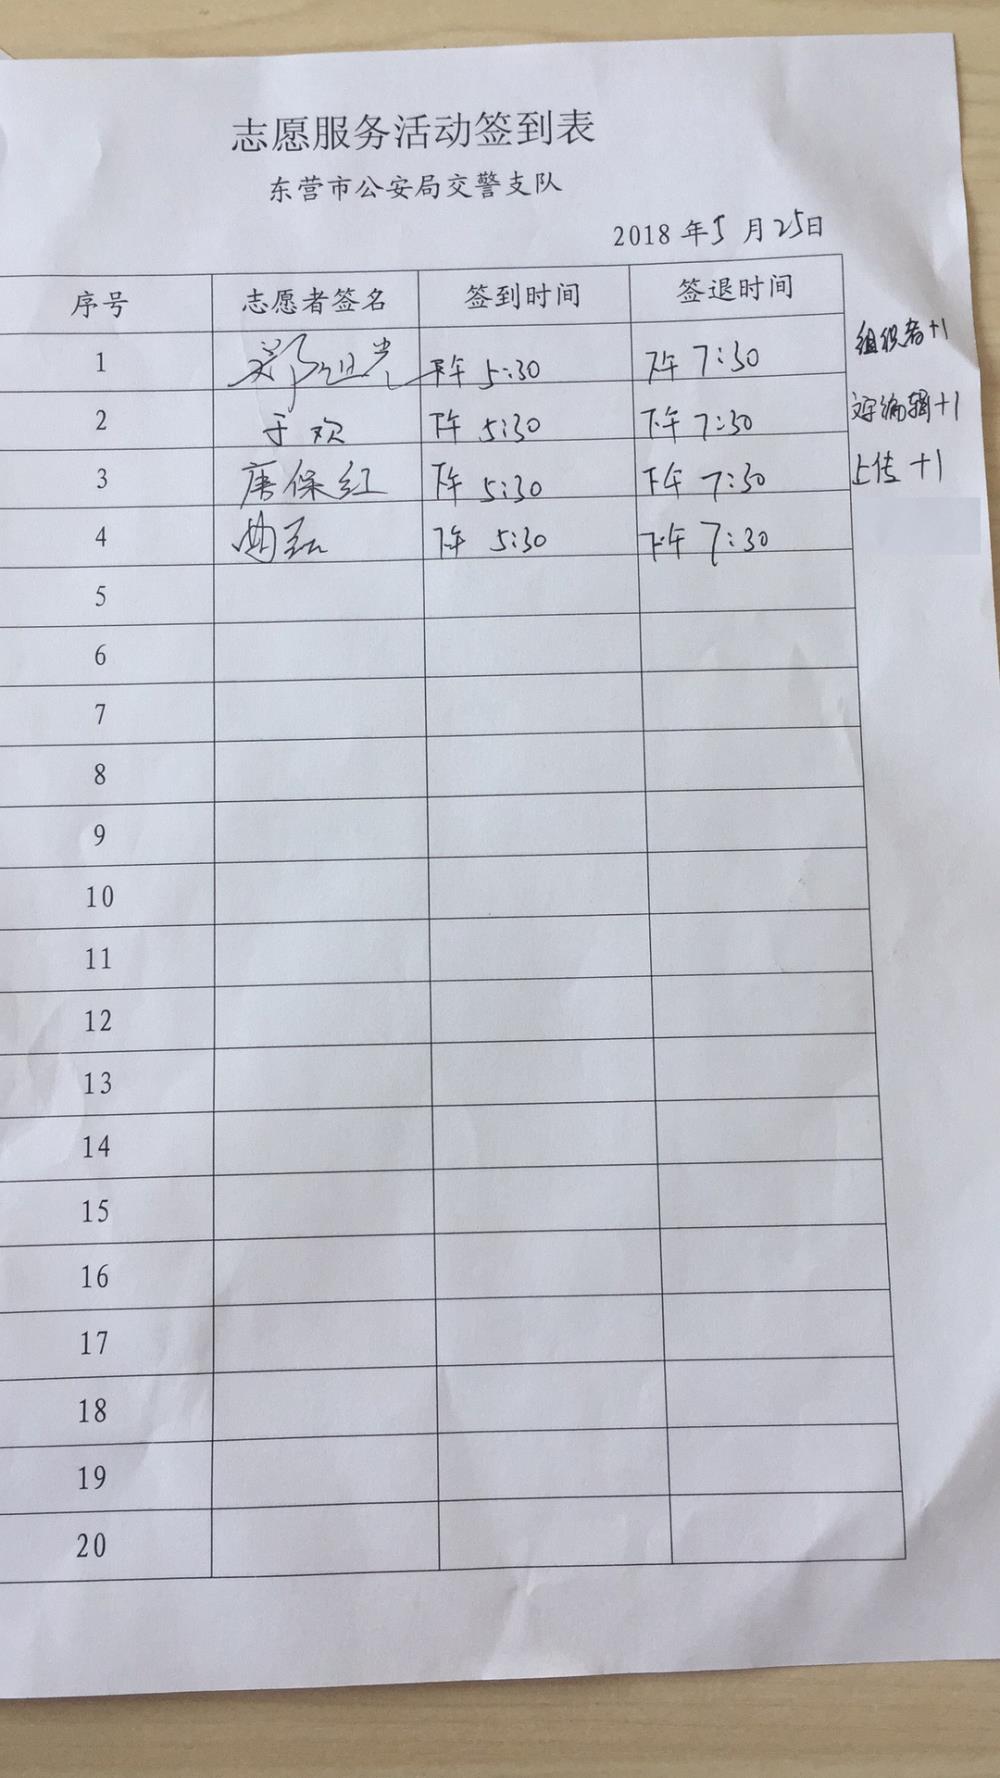 志愿服务活动签到表
东营市公安局交警支队
2018 年 5 月 25日
序号 志愿者签名 签到时间 签退时间
1 下午 5:30 下午 7:30 组织者+1
2 于欢 下午 5:30 下午 7:30 文字编辑+1
3 唐保红 下午 5:30 下午 7:30 上传+1
4 曲 下午 5:30 下午 7:30
5
6
7
8
9
10
11
12
13
14
15
16
17
18
19
20